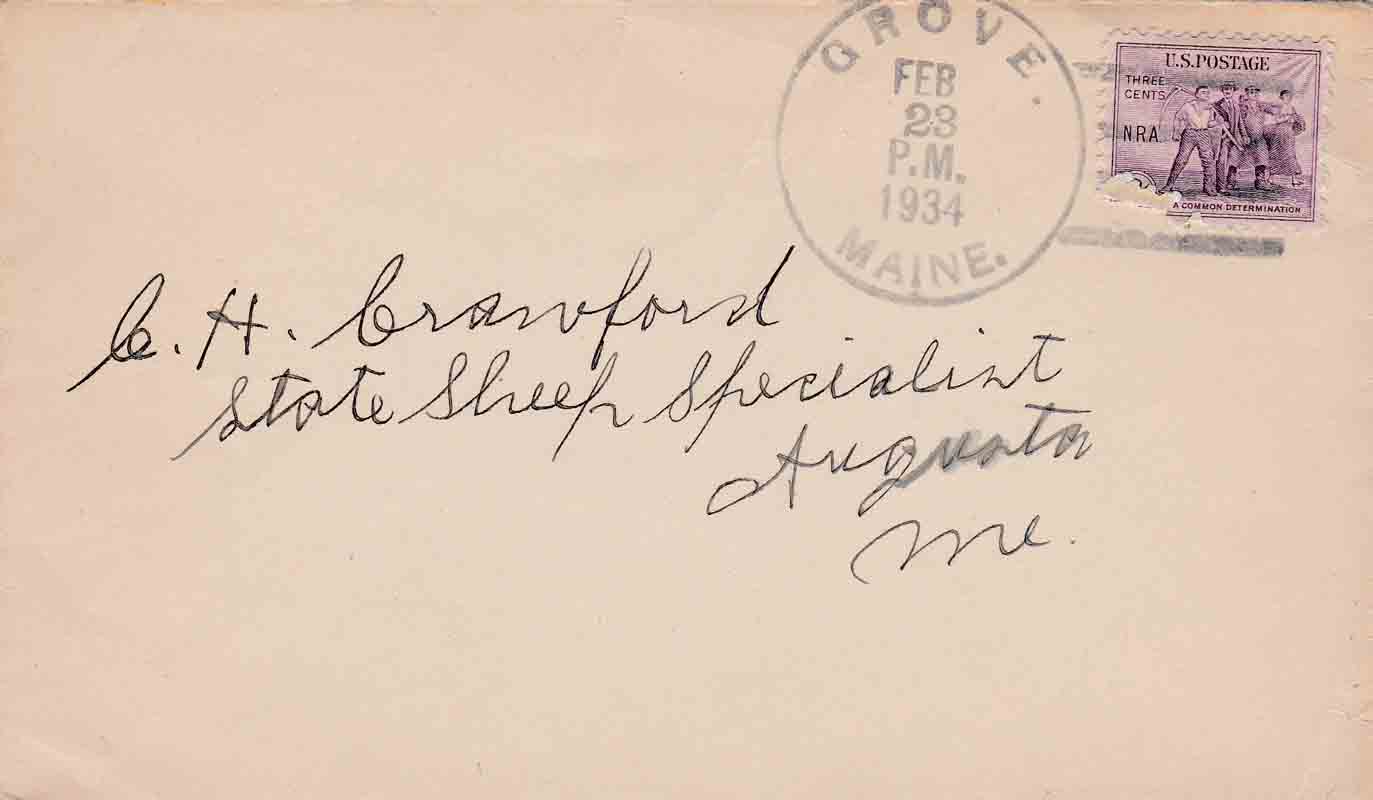 GROVE.
FEB
23
P.M.
1934
MAINE.
U.S. POSTAGE
THREE
CENTS
NRA
A COMMON DETERMINATION
C. H. Crawford
State Sheep Specialist
Augusta
Me.